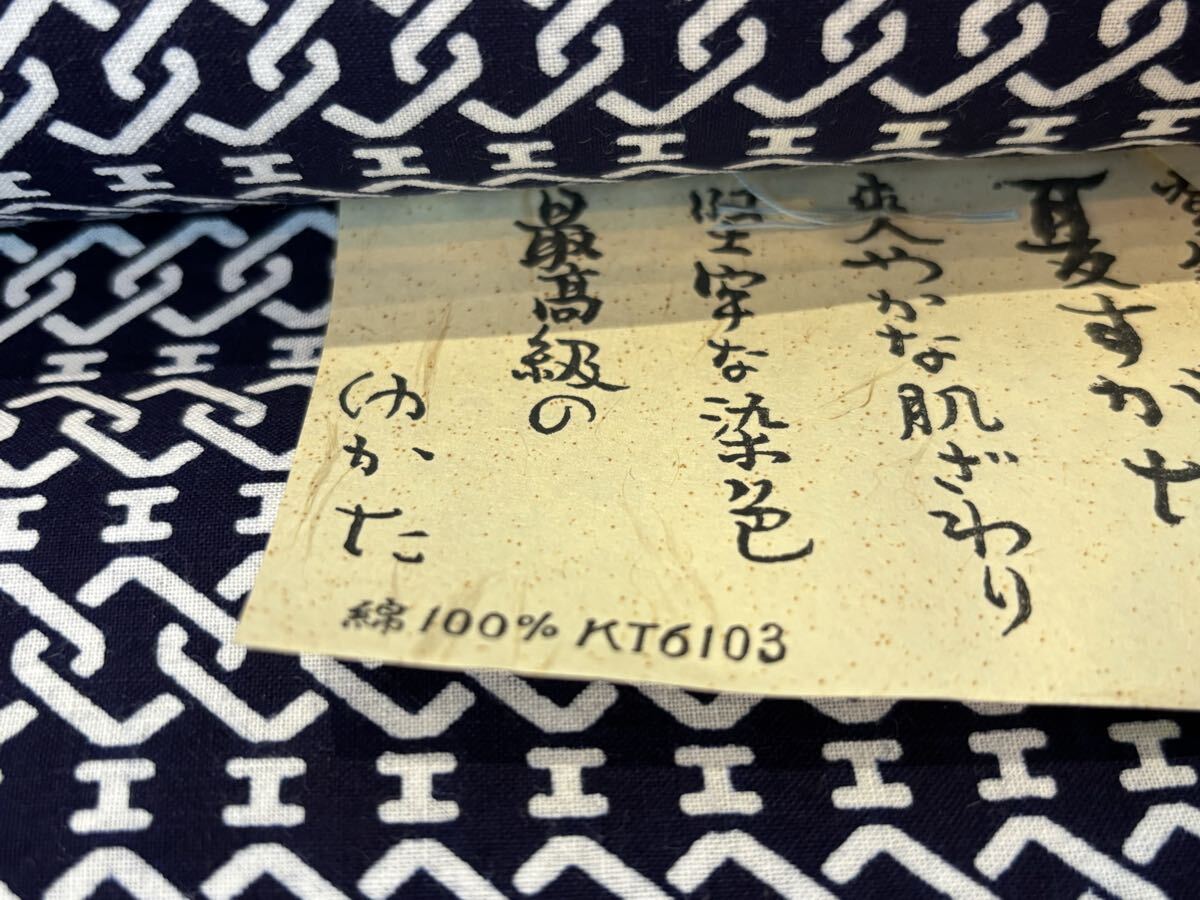 夏すがた
爽やかな肌ざわり
堅牢な染色
最高級の
ゆかた
綿100% KT6103